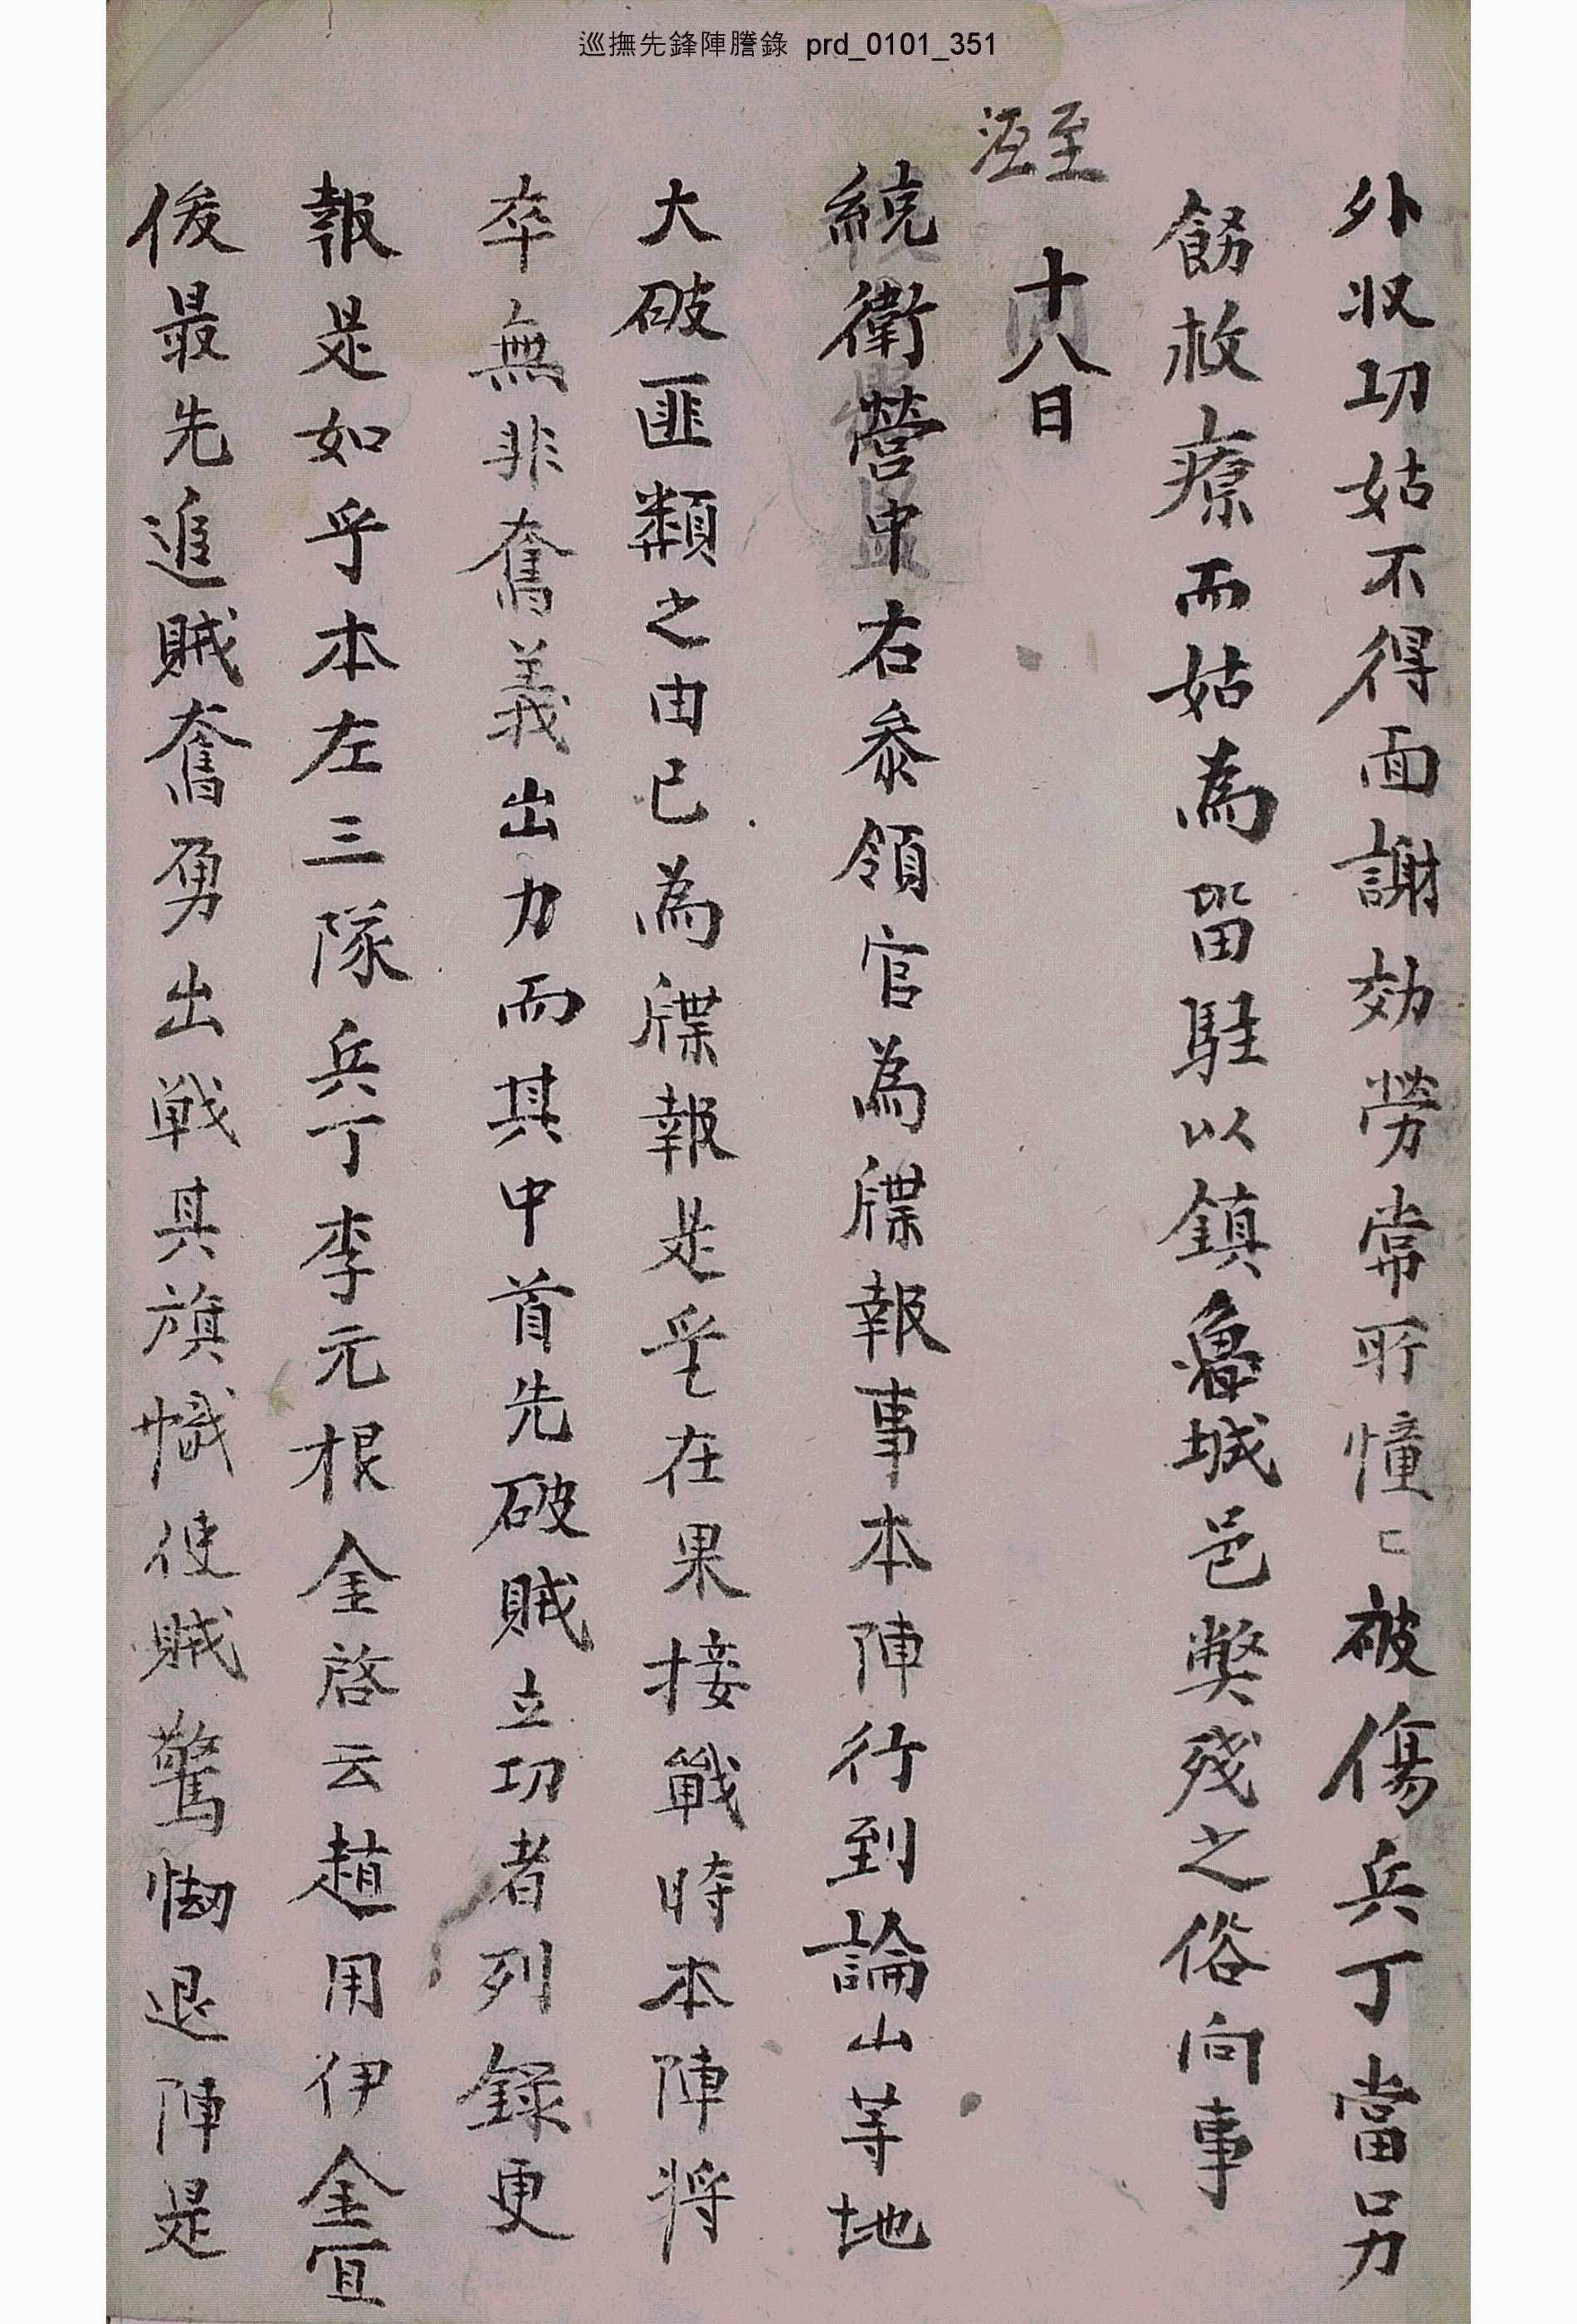 巡撫先鋒陣謄錄 prd_0101_351
外収功姑不得面謝効勞常所憧〻被傷兵丁當另
餝救療而姑為畱駐以鎮魯城邑弊殘之俗向事
至
十八日
統衛營中右叅領官為牒報事本陣行到論山等地
大破匪類之由已為牒報是乎在果接戰時本陣將
卒無非奮義出力而其中首先破賊立功者列錄更
報是如乎本左三隊兵丁李元根金啓云趙用伊金宜
俊最先追賊奮勇出戦其旗幟使賊驚惻退陣是